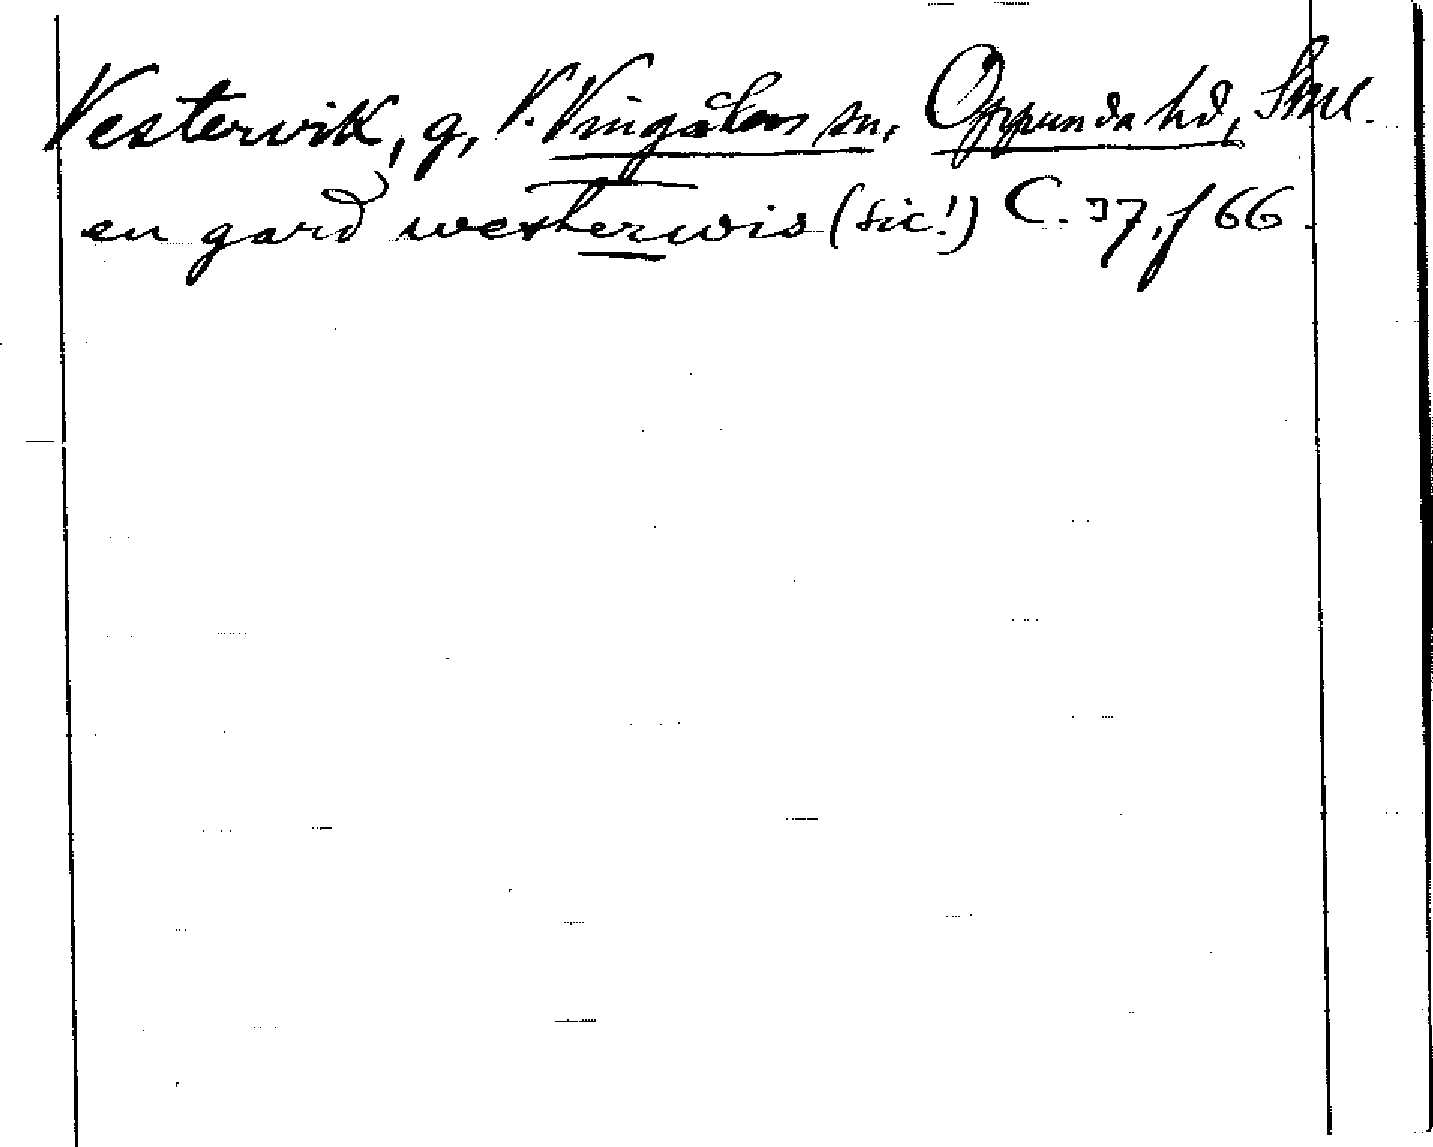 Vestervik, g, V. Vingåkers sn, Oppunda hd, Sml.
en gard westerwis (sic!) C. 37, f 66.